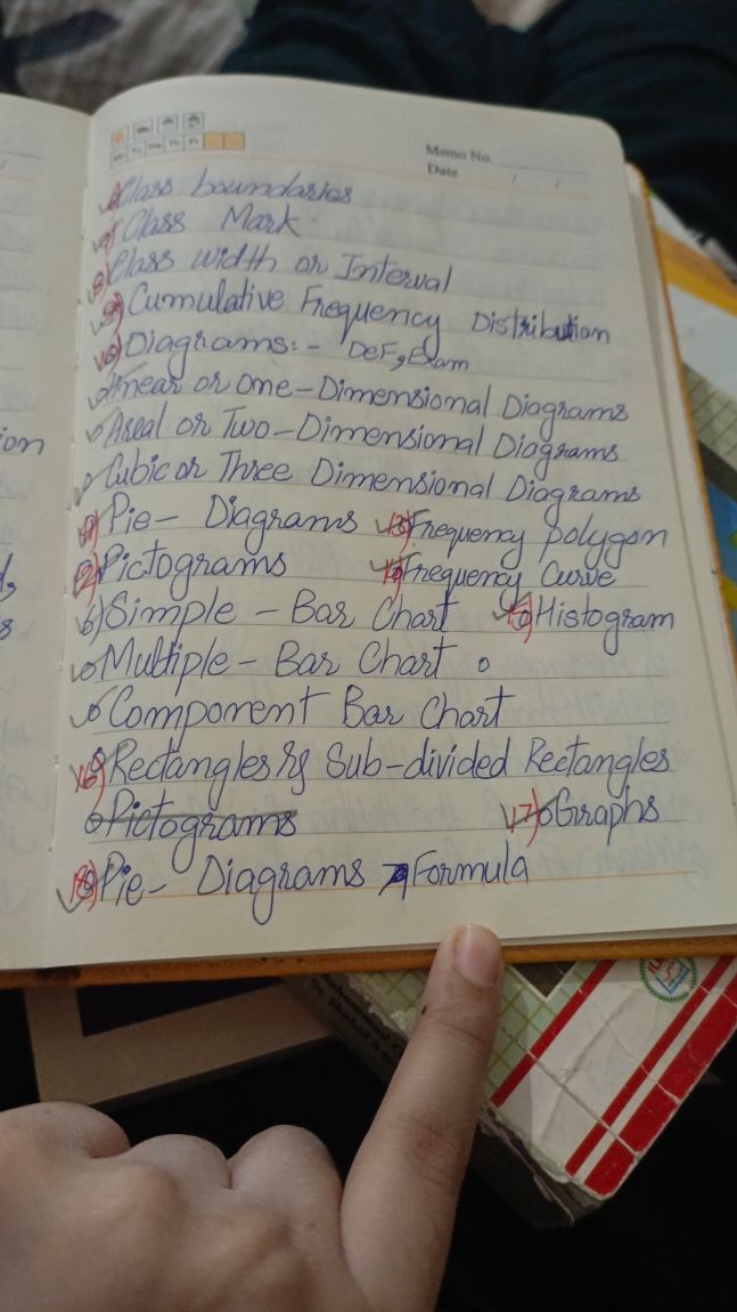 Memo No.
Date
Class boundaries
Class Mark
8) Class width or Interval
9) Cumulative Frequency Distribution
10) Diagrams:- Def, Exam
Linear or one-Dimensional Diagrams
Areal or Two-Dimensional Diagrams
Cubic or Three Dimensional Diagrams
11) Pie- Diagrams 13) Frequency polygon
12) Pictograms Frequency Curve
Simple - Bar Chart 15) Histogram
Multiple - Bar Chart
Component Bar Chart
16) Rectangles & Sub-divided Rectangles
Pictograms 17) Graphs
18) Pie- Diagrams Formula
ion